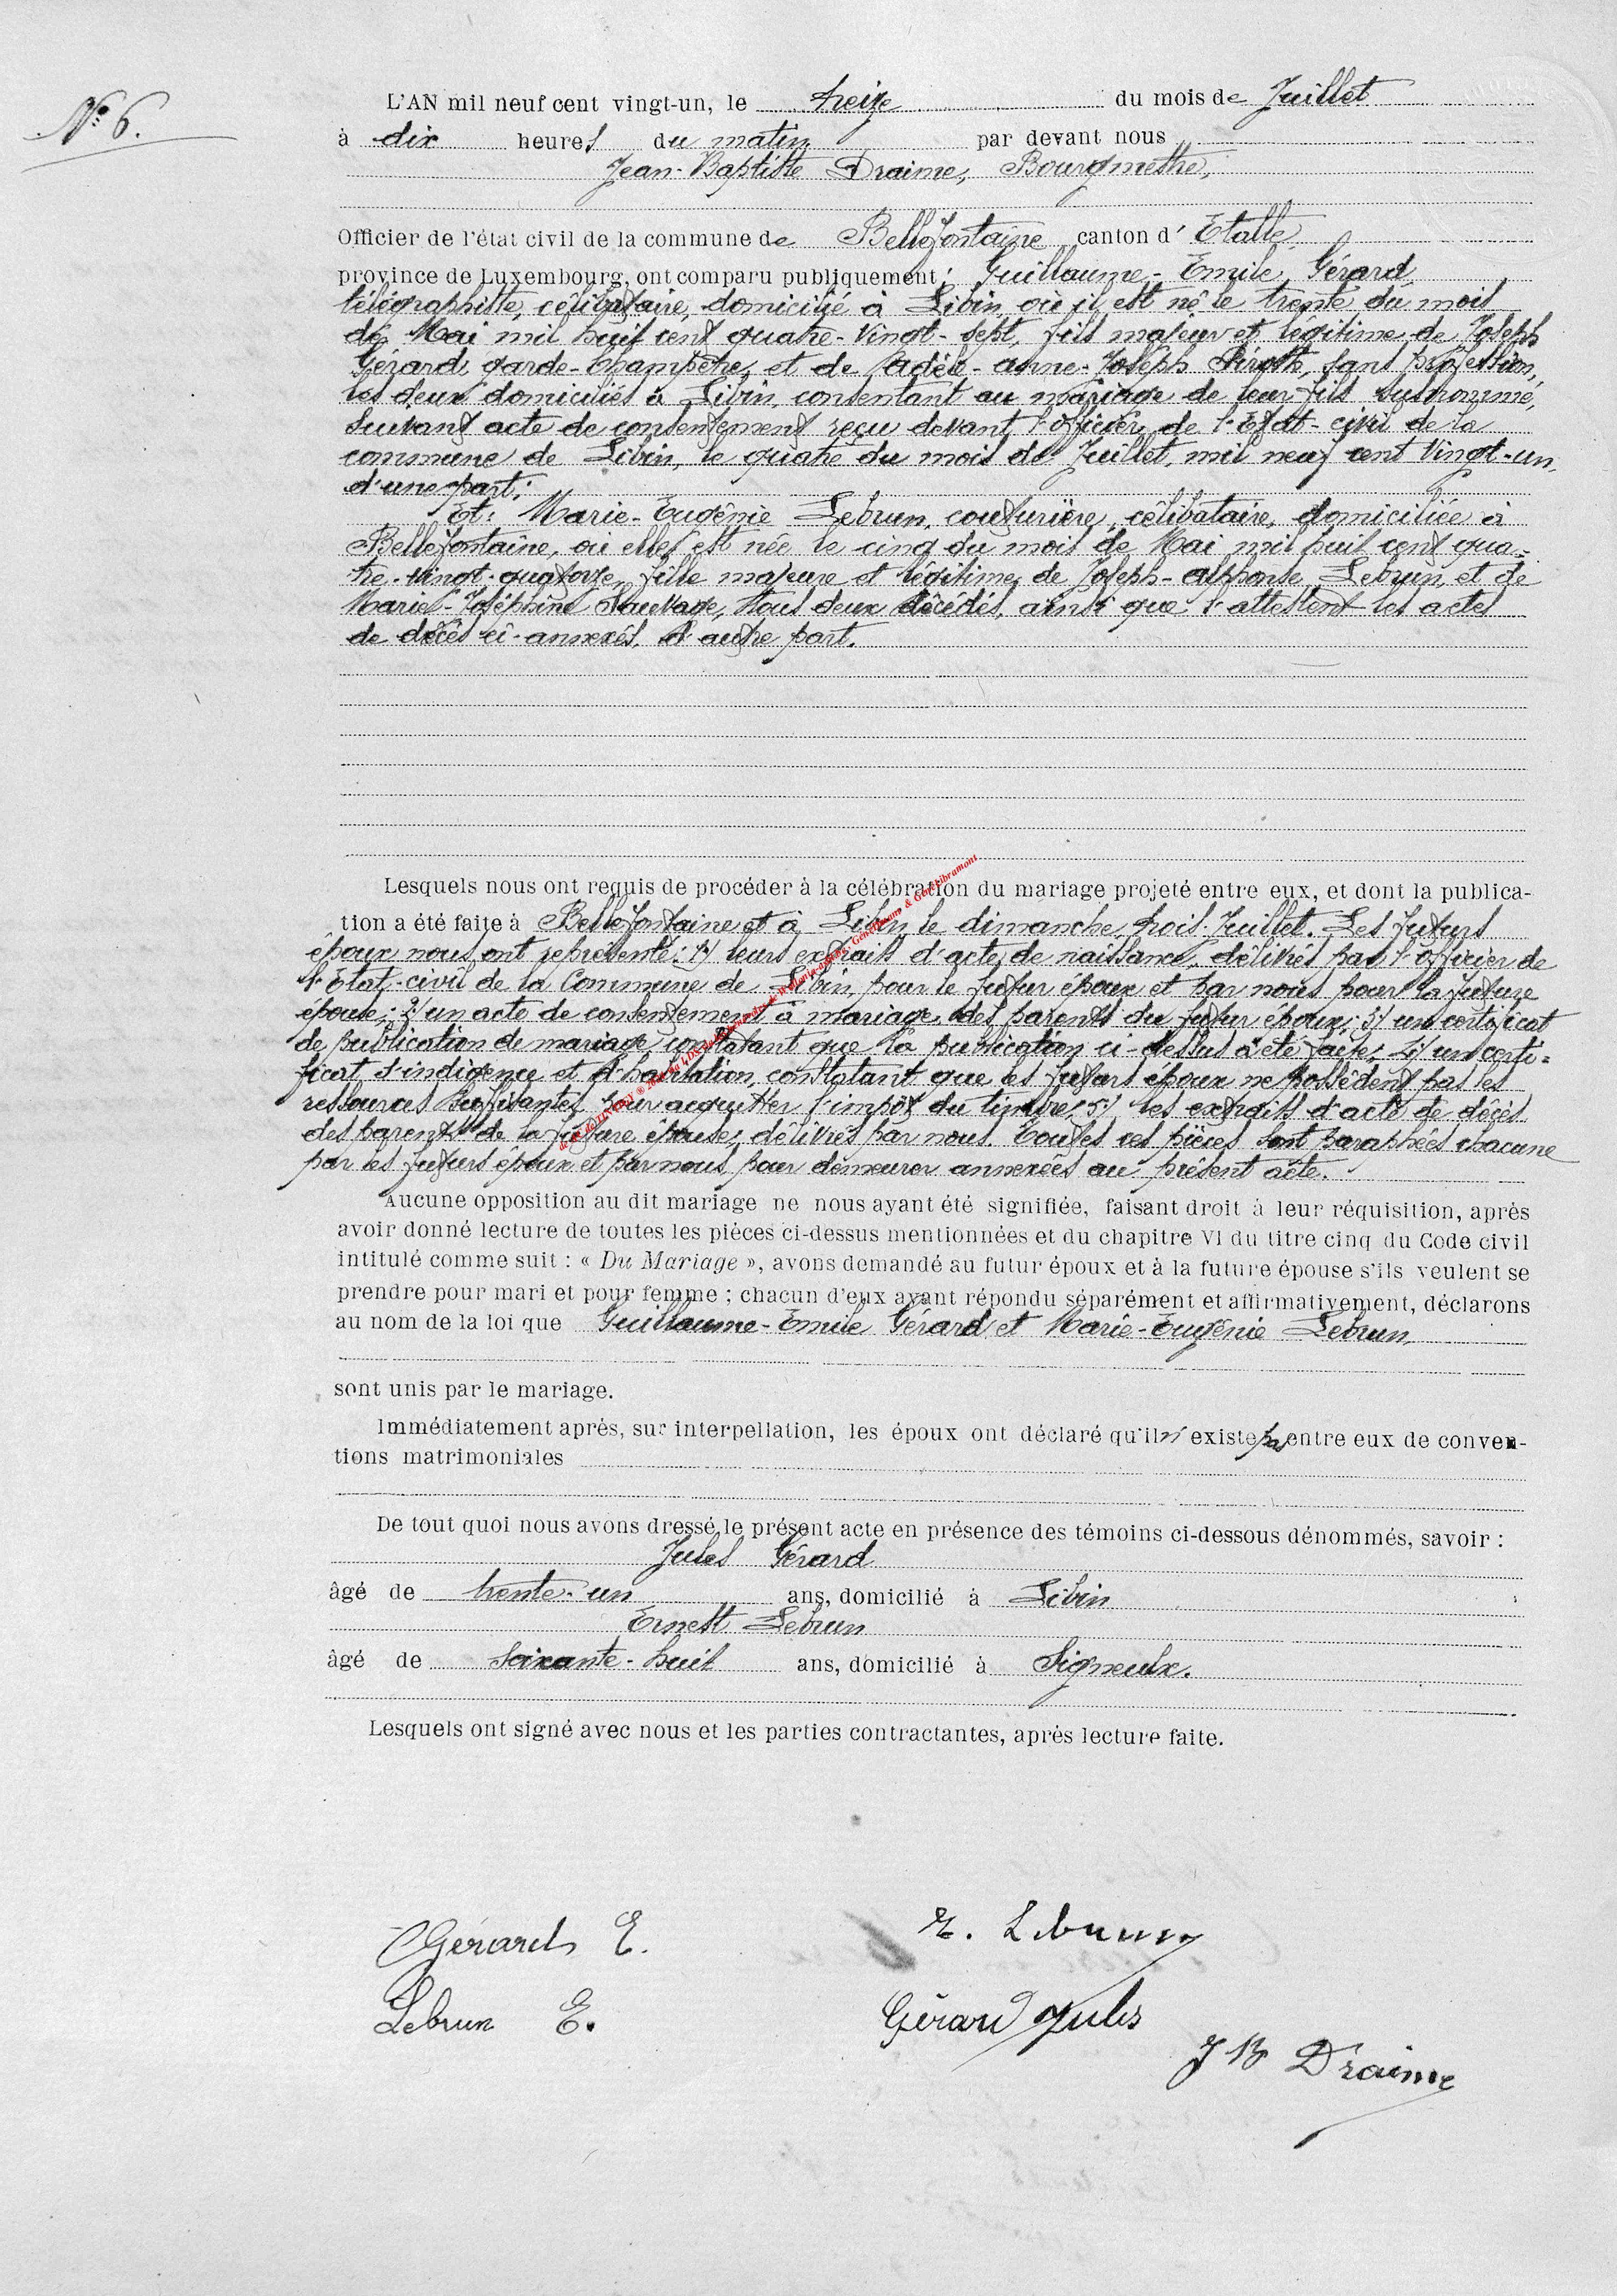 N° 6.
L'AN mil neuf cent vingt-un, le treize du mois de Juillet
à dix heures du matin par devant nous
Jean-Baptiste Draime, Bourgmestre,
Officier de l'état civil de la commune de Bellefontaine canton d' Etalle
province de Luxembourg, ont comparu publiquement : Guillaume-Emile Gérard,
télégraphiste, célibataire, domicilié à Libin, où il est né le trente du mois
de Mai mil huit cent quatre-vingt-sept, fils majeur et légitime de Joseph
Gérard, garde-champêtre, et de Adèle-Anne-Joseph sans profession,
les deux domiciliés à Libin, consentant au mariage de leur fils susnommé,
suivant acte de consentement reçu devant l'officier de l'Etat-civil de la
commune de Libin, le quatre du mois de Juillet, mil neuf cent vingt-un,
d'une part;
Et: Marie-Eugénie Lebrun, couturière, célibataire, domiciliée à
Bellefontaine, où elle est née le cinq du mois de Mai mil huit cent qua-
tre-vingt-quatorze, fille majeure et légitime de Joseph-Alphonse Lebrun, et de
Marie-Joséphine Sauvage, tous deux décédés, ainsi que l'attestent les actes
de décès ci-annexés, d'autre part.
Lesquels nous ont requis de procéder à la célébration du mariage projeté entre eux, et dont la publica-
tion a été faite à Bellefontaine et à Libin, le dimanche, trois Juillet. Les futurs
époux nous ont représenté: 1°/ leurs extraits d'acte de naissance, délivrés par l'officier de
l'Etat-civil de la Commune de Libin, pour le futur époux et par nous pour la future
épouse; 2/ un acte de consentement à mariage des parents du futur époux; 3/ un certificat
de publication de mariage constatant que la publication ci-dessus a été faite; 4/ un certi-
ficat d'indigence et d'habitation, constatant que les futurs époux ne possèdent pas les
ressources suffisantes pour acquitter l'impôt du timbre; 5/ les extraits d'acte de décès
des parents de la future épouse, délivrés par nous. Toutes ces pièces sont paraphées chacune
par les futurs époux et par nous pour demeurer annexées au présent acte.
Aucune opposition au dit mariage ne nous ayant été signifiée, faisant droit à leur réquisition, après
avoir donné lecture de toutes les pièces ci-dessus mentionnées et du chapitre VI du titre cinq du Code civil
intitulé comme suit : « Du Mariage », avons demandé au futur époux et à la future épouse s'ils veulent se
prendre pour mari et pour femme ; chacun d'eux ayant répondu séparément et affirmativement, déclarons
au nom de la loi que Guillaume-Emile Gérard et Marie-Eugénie Lebrun,
sont unis par le mariage.
Immédiatement après, sur interpellation, les époux ont déclaré qu'il n'existe pas entre eux de conven-
tions matrimoniales
De tout quoi nous avons dressé le présent acte en présence des témoins ci-dessous dénommés, savoir :
Jules Gérard
âgé de trente-un ans, domicilié à Libin
Ernest Lebrun
âgé de soixante-huit ans, domicilié à Signeulx.
Lesquels ont signé avec nous et les parties contractantes, après lecture faite.
Gérard E.
E. Lebrun
Lebrun E.
Gérard Jules
J B Draime